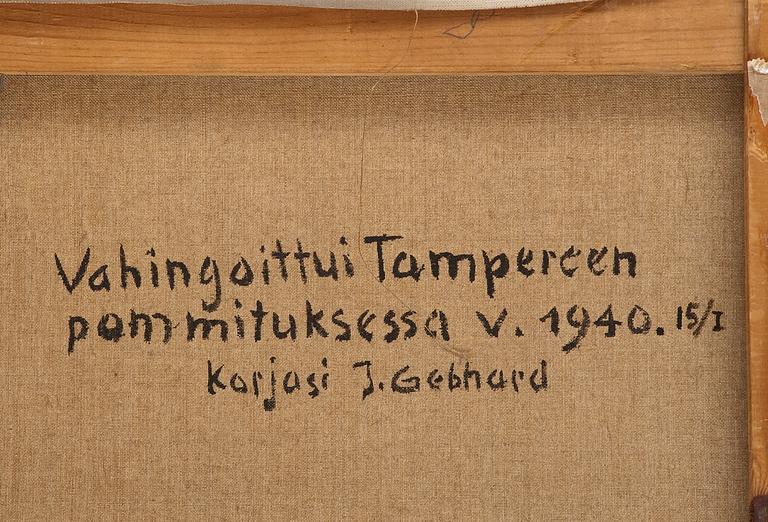 Vahingoittui Tampereen
pommituksessa v. 1940. 15/I
Korjasi J. Gebhard